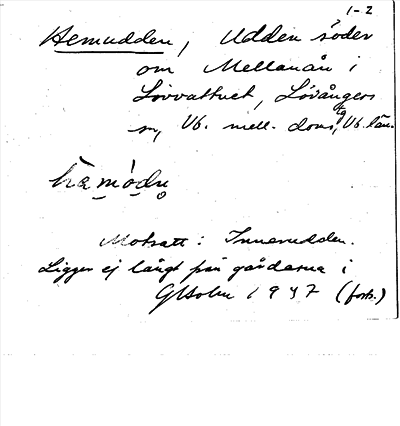 1-2
Hemudden, Udden söder
om Mellanån i
Lövvattnet, Lövångers
sn, Vb. mell. doms, tg Vb. län.
hæmódn̥
Motsatt: Innerudden.
Ligger ej långt från gårdarna i
GHolm 1937 (forts.)